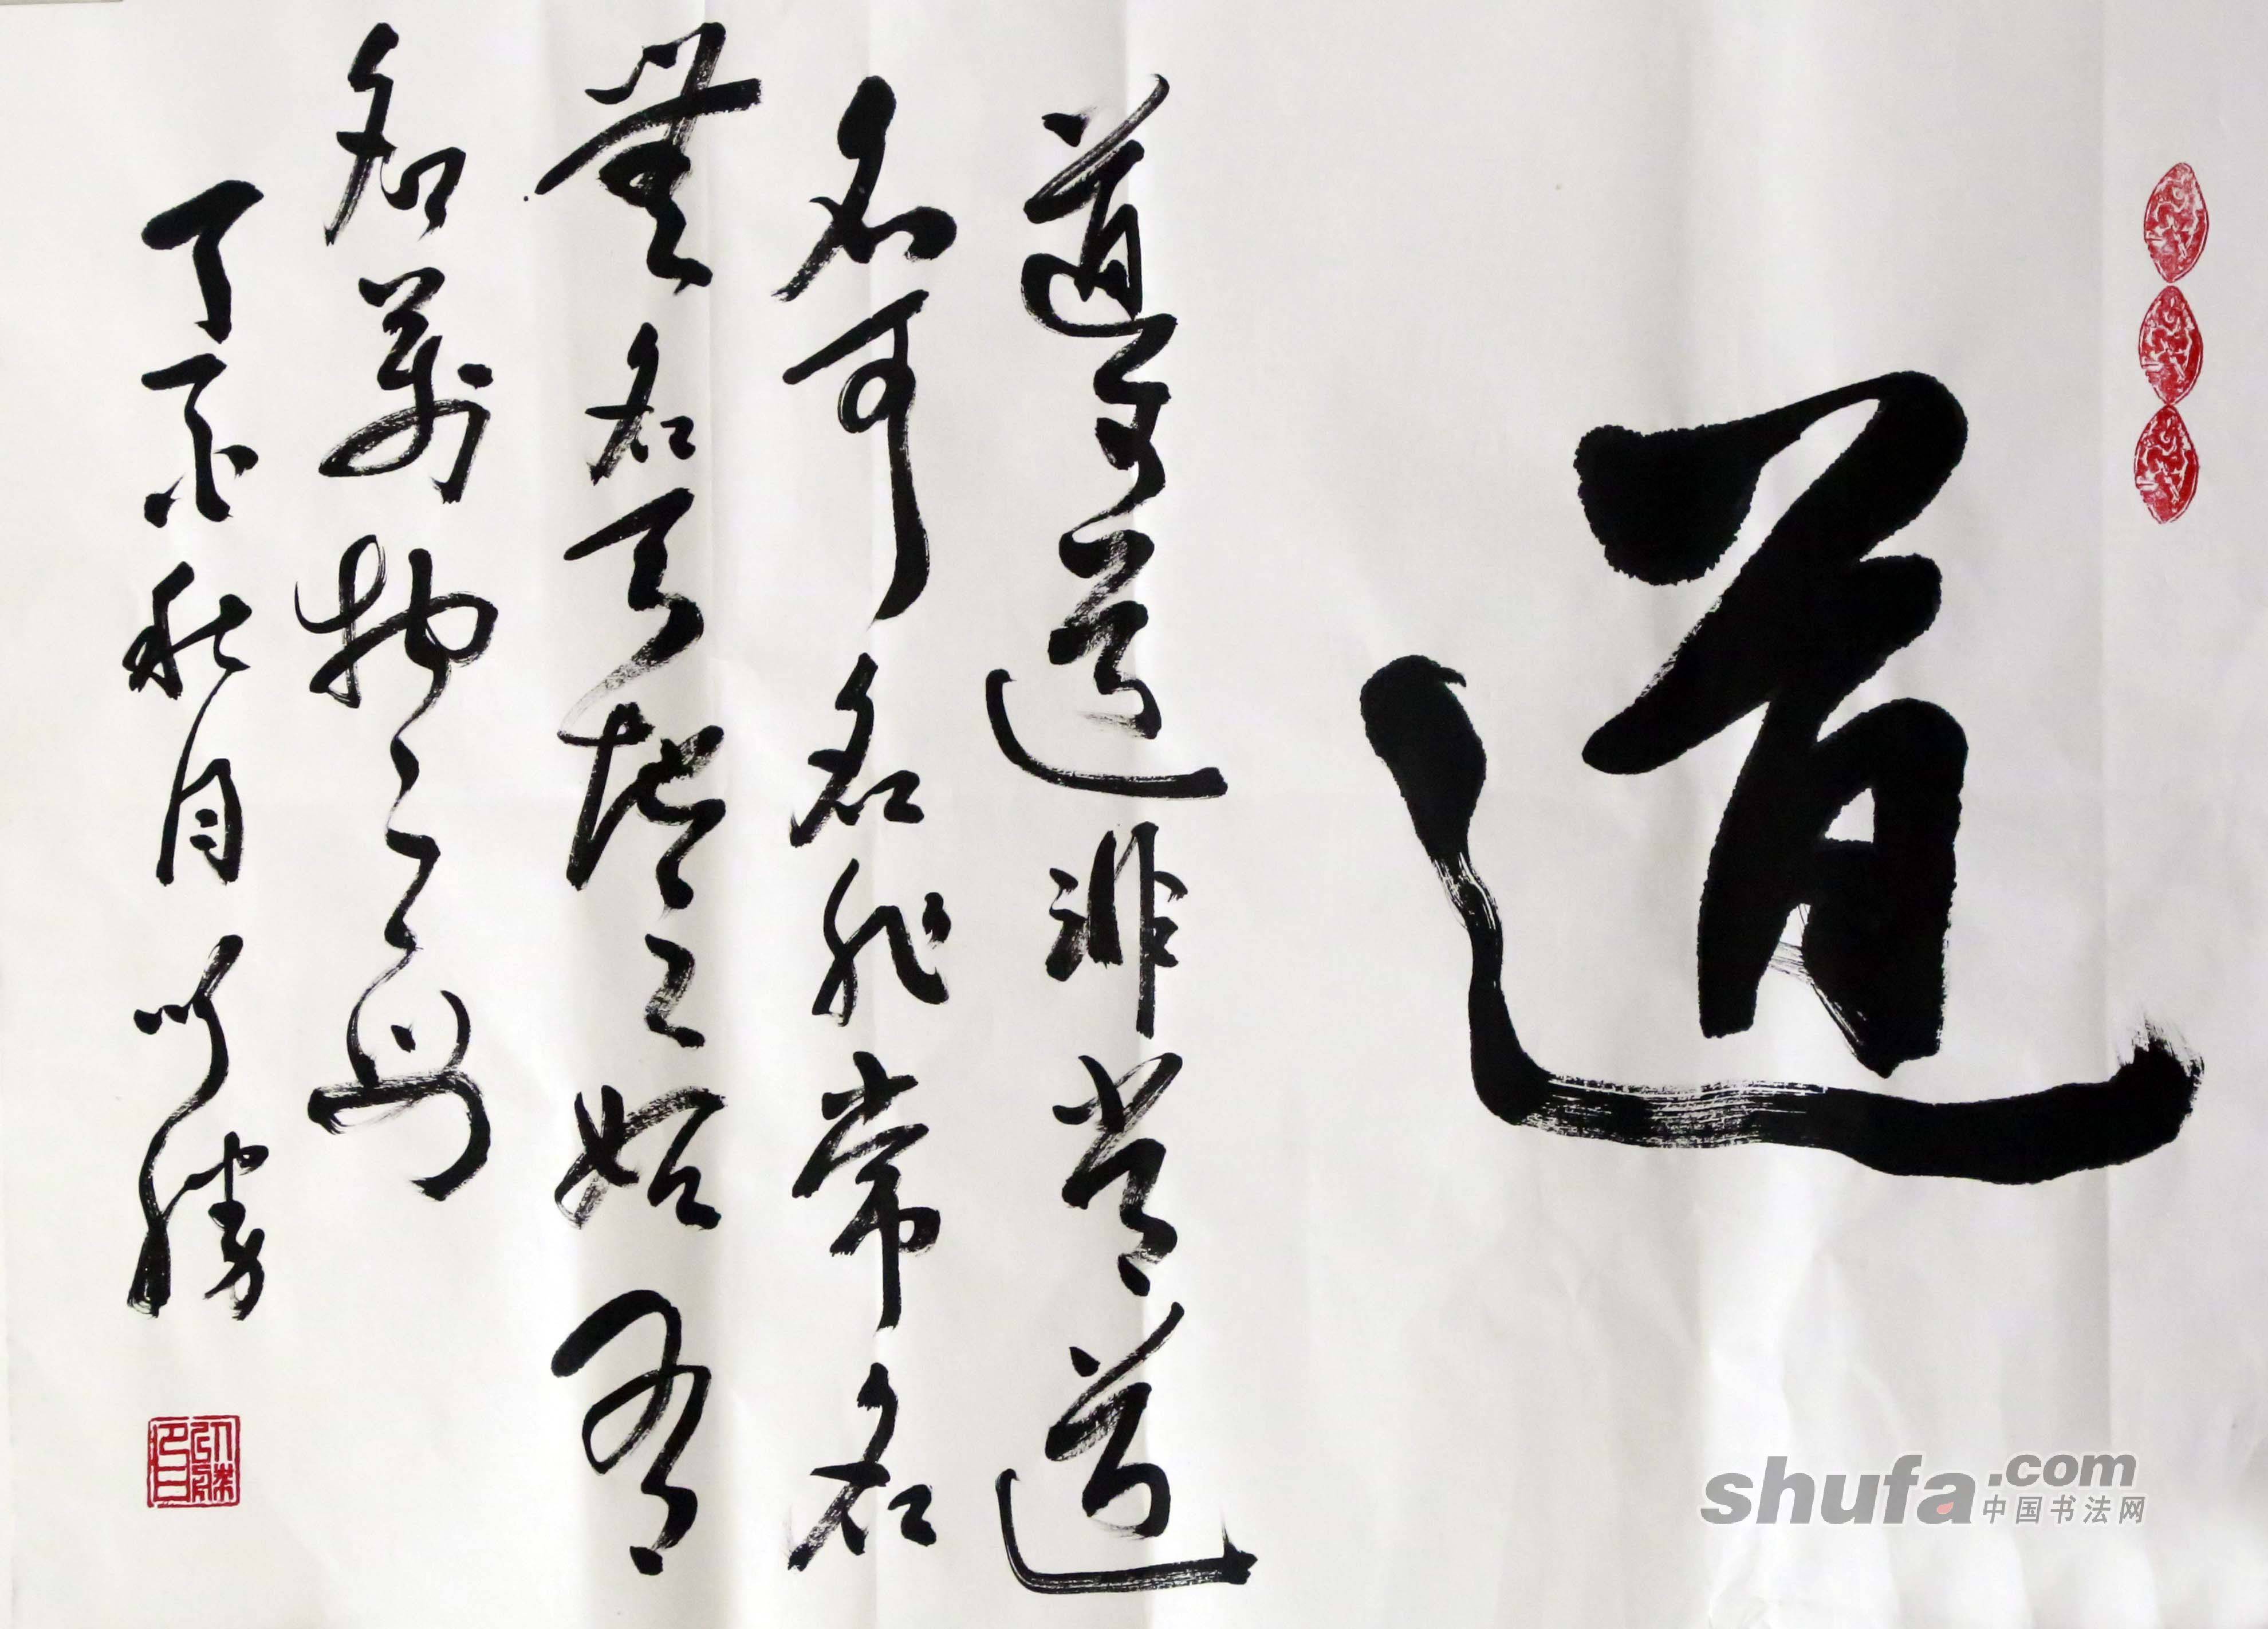 道
道可道非常道
名可名非常名
無名天地之始有
名萬物之母
丁 秋月 勝
shufa.com
中国书法网